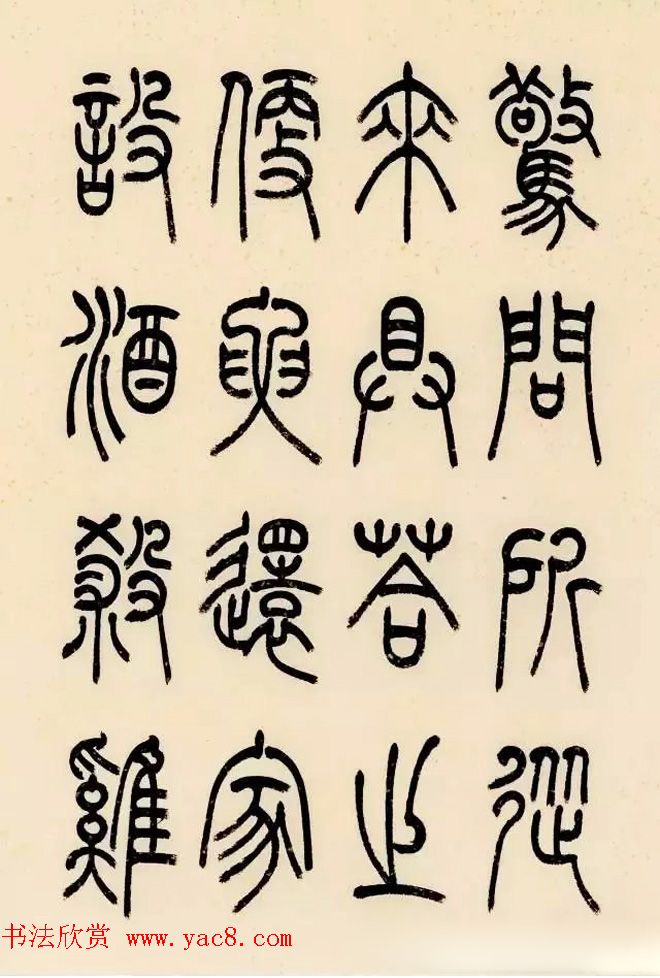 驚問所從
來具荅之
便要還家
設酒殺雞
书法欣赏 www.yac8.com